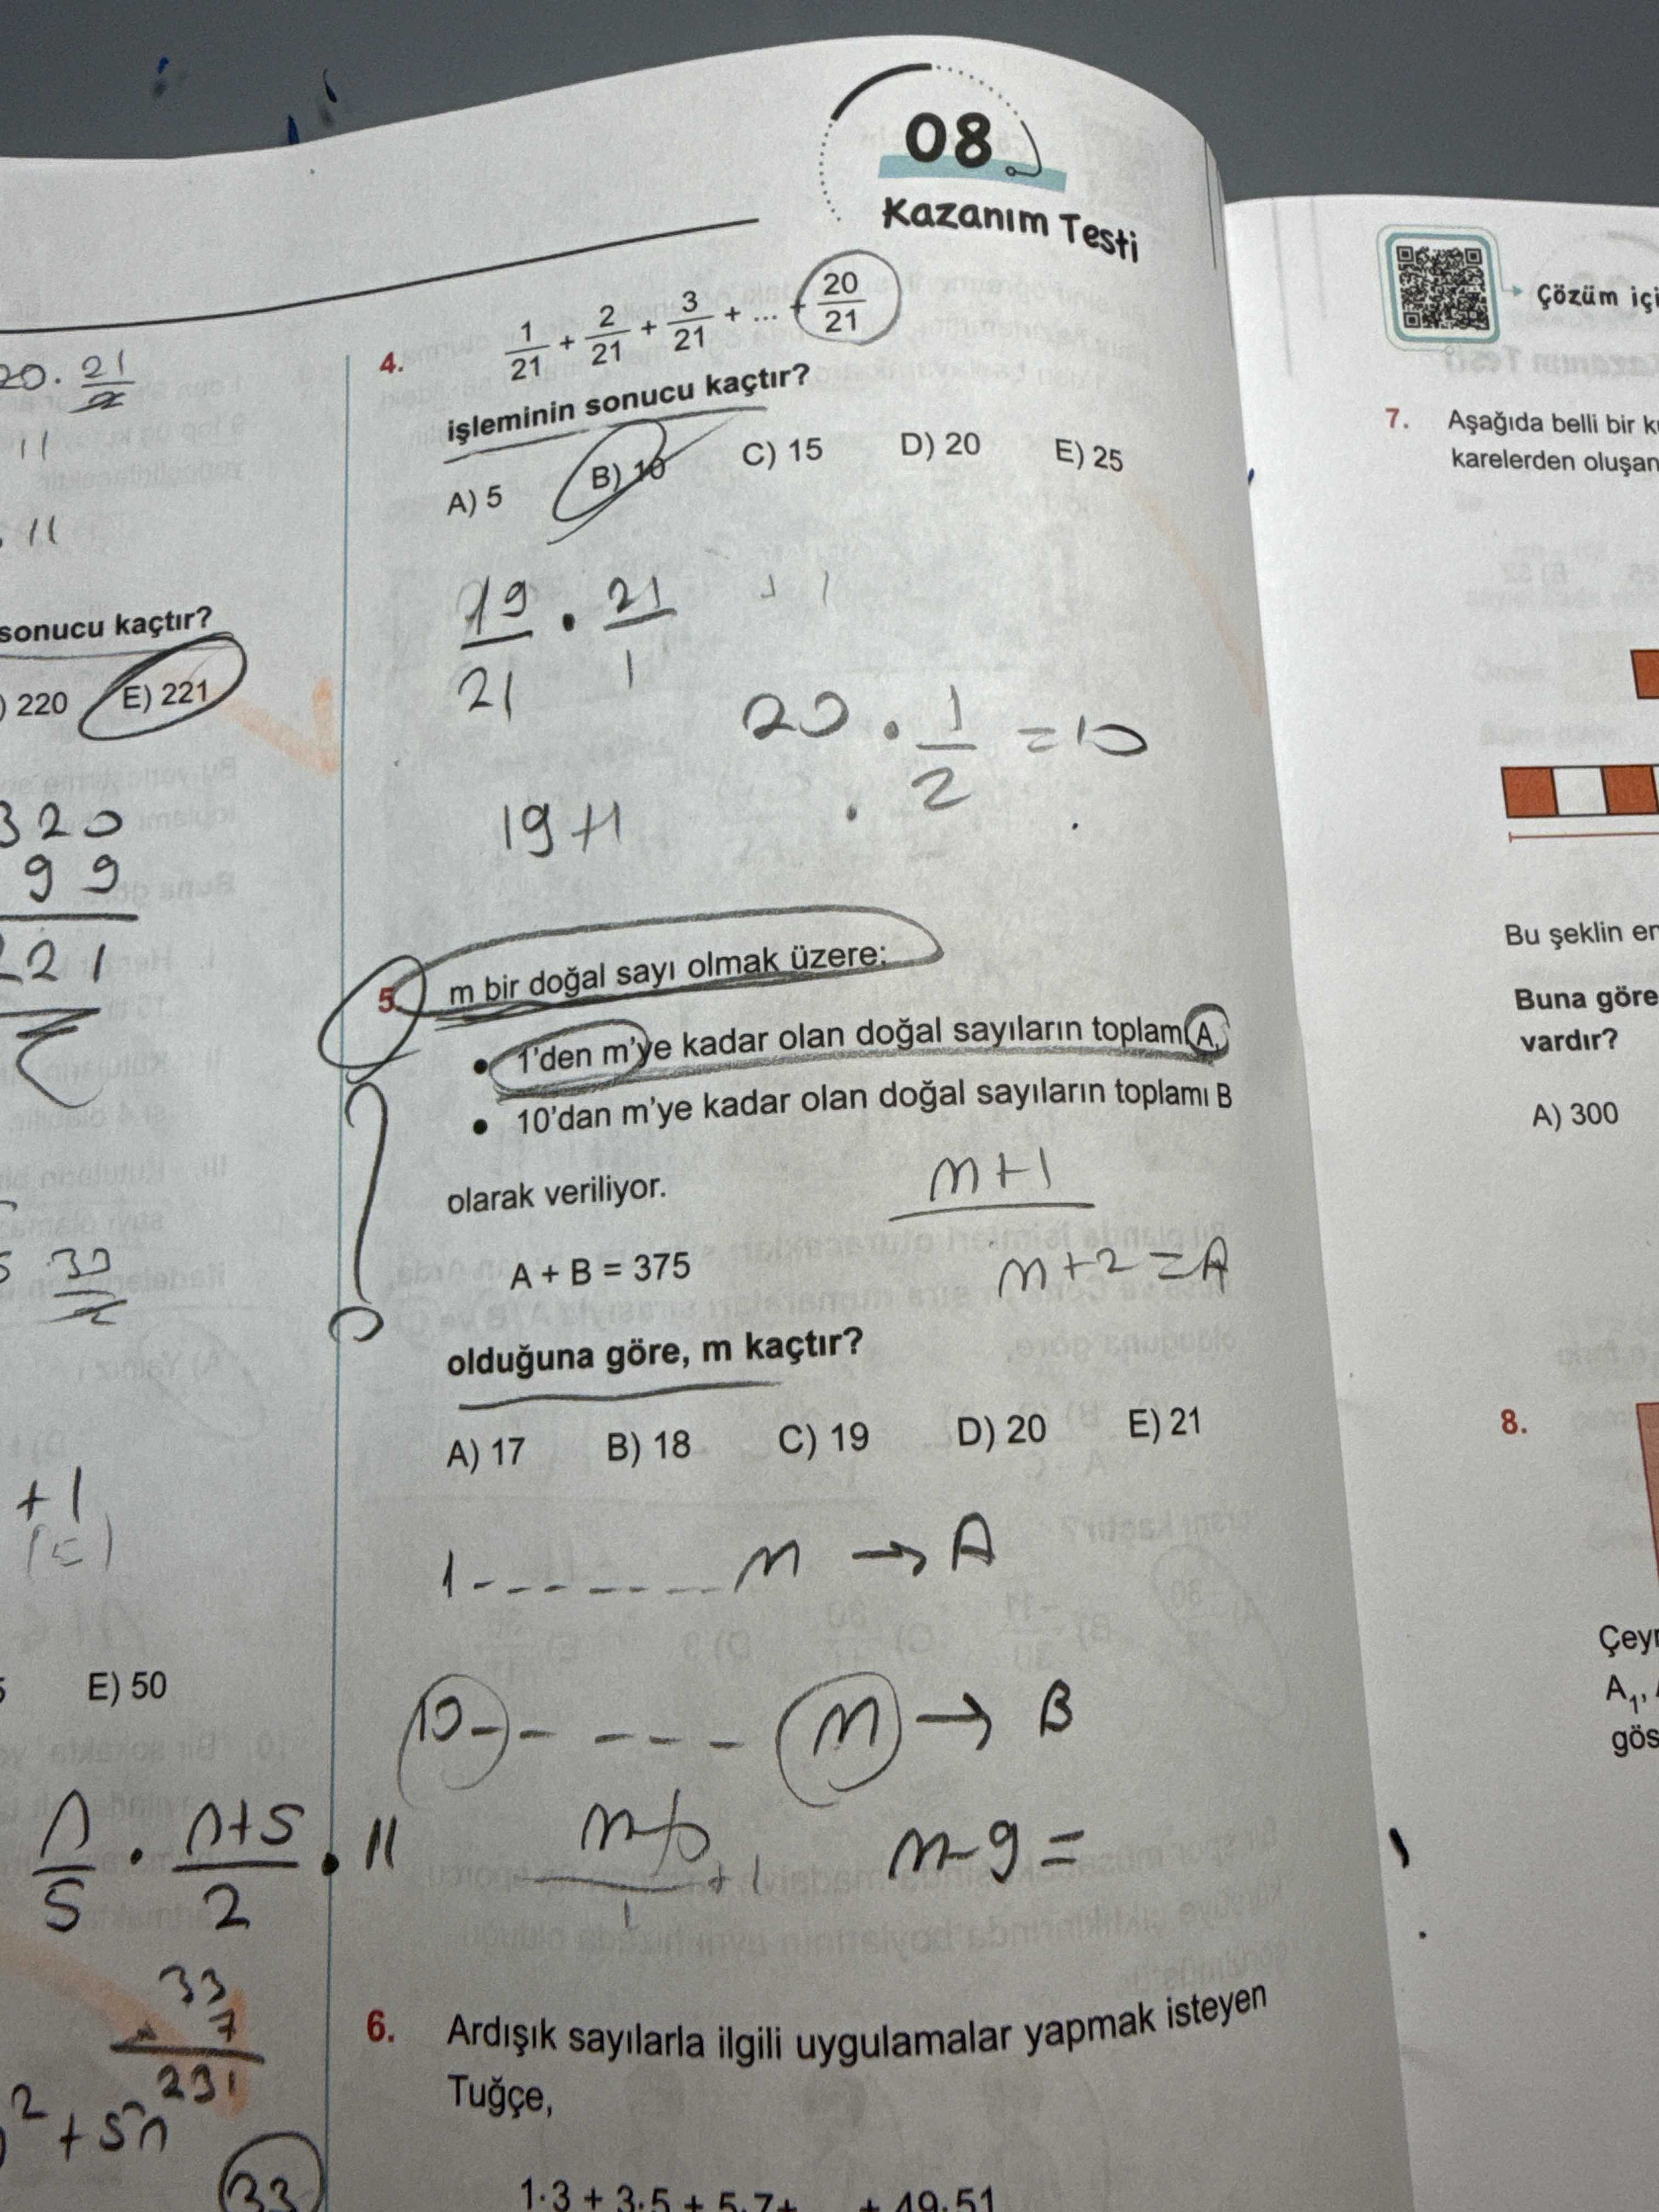 08
Kazanım Testi
20 . 21/2
11
. 11
sonucu kaçtır?
) 220 E) 221
320
99
221
33
+1
E) 50
n/5 . n+5/2 . 11
33
7
231
2 + 5n
33
4. 1/21 + 2/21 + 3/21 + ... + 20/21
işleminin sonucu kaçtır?
A) 5 B) 10 C) 15 D) 20 E) 25
19/21 . 21/1
20 . 1/2 = 10
19+1
5. m bir doğal sayı olmak üzere;
• 1'den m'ye kadar olan doğal sayıların toplamı A,
• 10'dan m'ye kadar olan doğal sayıların toplamı B
olarak veriliyor.
m+1
m+2=A
A + B = 375
olduğuna göre, m kaçtır?
A) 17 B) 18 C) 19 D) 20 E) 21
1 - - - - - - - m → A
10 - - - - - - m → B
m-9=
6. Ardışık sayılarla ilgili uygulamalar yapmak isteyen
Tuğçe,
1·3 + 3·5 + 5·7+ + 49·51
Çözüm içi
7. Aşağıda belli bir
karelerden oluşan
Bu şeklin
Buna göre
vardır?
A) 300
8.
A₁,